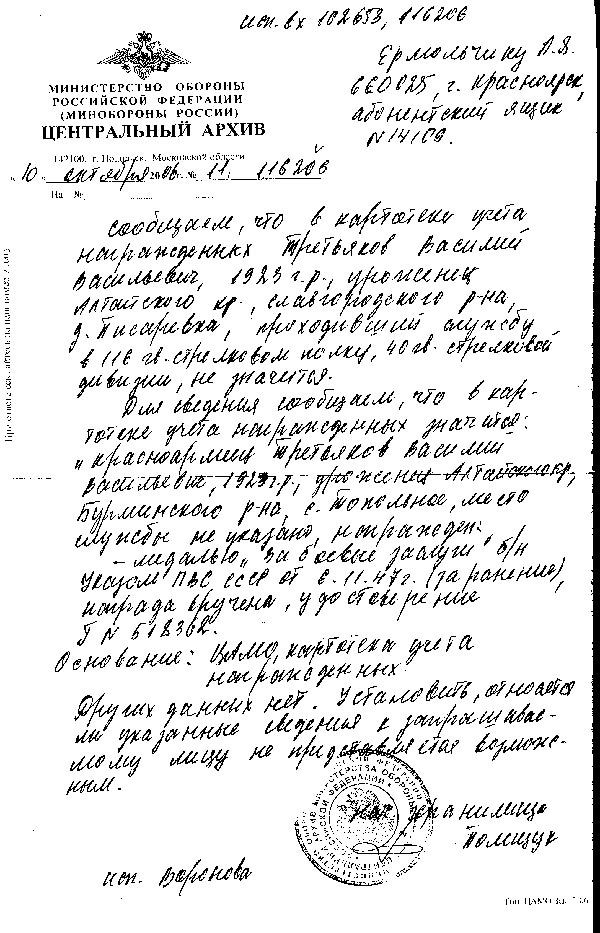 исп. вх 102653, 116206
Ермольчику А.Я.
660025, г. Красноярск,
абонентский ящик
N 14109.
МИНИСТЕРСТВО ОБОРОНЫ
РОССИЙСКОЙ ФЕДЕРАЦИИ
(МИНОБОРОНЫ РОССИИ)
ЦЕНТРАЛЬНЫЙ АРХИВ
142100, г. Подольск, Московской области
„10 „ октября 2006 г. № 11/ 116206
На №
сообщаем, что в картотеке учета
награжденных Третьяков Василий
Васильевич, 1923 г.р., уроженец
Алтайского кр., Славгородского р-на,
д. Писаревка, проходивший службу
в 116 гв. стрелковом полку, 40 гв. стрелковой
дивизии, не значится.
Для сведения сообщаем, что в кар-
тотеке учета награжденных значится:
„красноармеец Третьяков Василий
Васильевич, 1923 г.р., уроженец Алтайского кр.,
Бурминского р-на, с. Топольное, место
службы не указано, награжден:
– медалью „За боевые заслуги" б/н
Указом ПВС СССР от 6.11.47г. (за ранение),
награда вручена, удостоверение
Г N 518362.
Основание: ЦАМО, картотека учета
награжденных
Других данных нет. Установить, относятся
ли указанные сведения к запрашивае-
мому лицу не представляется возмож-
ным.
нач. хранилища
Полищук
исп. Воронова
Тип. ЦАМО